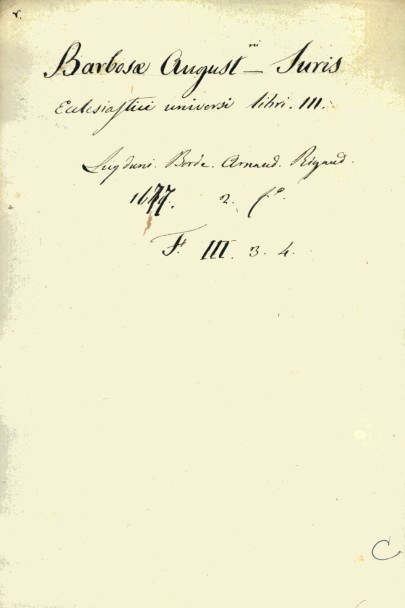 Barbosæ August^ni — Juris
Ecclesiastici universi libri. III.
Lugduni. Borde. Arnaud. Rigaud.
1677. 2. f^o.
F. III. 3. 4.
C